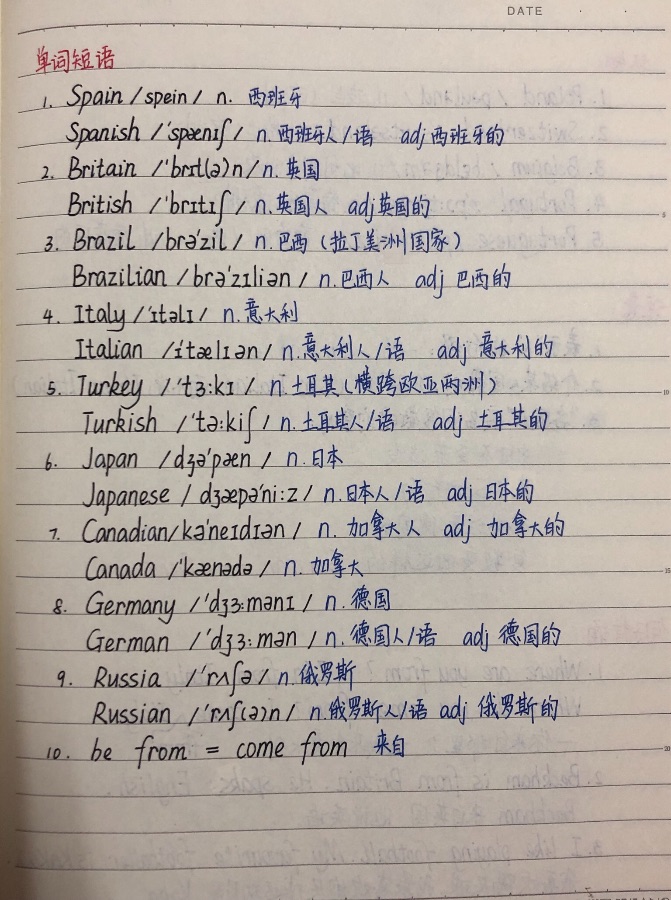 DATE
单词短语
1. Spain /spein/ n. 西班牙
Spanish /'spænɪʃ/ n.西班牙人/语 adj西班牙的
2. Britain /'brɪt(ə)n/ n.英国
British /'brɪtɪʃ/ n.英国人 adj英国的
3. Brazil /brə'zil/ n.巴西(拉丁美洲国家)
Brazilian /brə'zɪliən/ n.巴西人 adj 巴西的
4. Italy /'ɪtəlɪ/ n.意大利
Italian /ɪ'tælɪən/ n.意大利人/语 adj 意大利的
5. Turkey /'tɜ:kɪ/ n.土耳其(横跨欧亚两洲)
Turkish /'tə:kiʃ/ n.土耳其人/语 adj 土耳其的
6. Japan /dʒə'pæn/ n.日本
Japanese /dʒæpə'ni:z/ n.日本人/语 adj 日本的
7. Canadian/kə'neɪdɪən/ n. 加拿大人 adj 加拿大的
Canada /'kænədə/ n.加拿大
8. Germany /'dʒɜ:mənɪ/ n.德国
German /'dʒɜ:mən/ n.德国人/语 adj 德国的
9. Russia /'rʌʃə/ n.俄罗斯
Russian /'rʌʃ(ə)n/ n.俄罗斯人/语 adj 俄罗斯的
10. be from = come from 来自